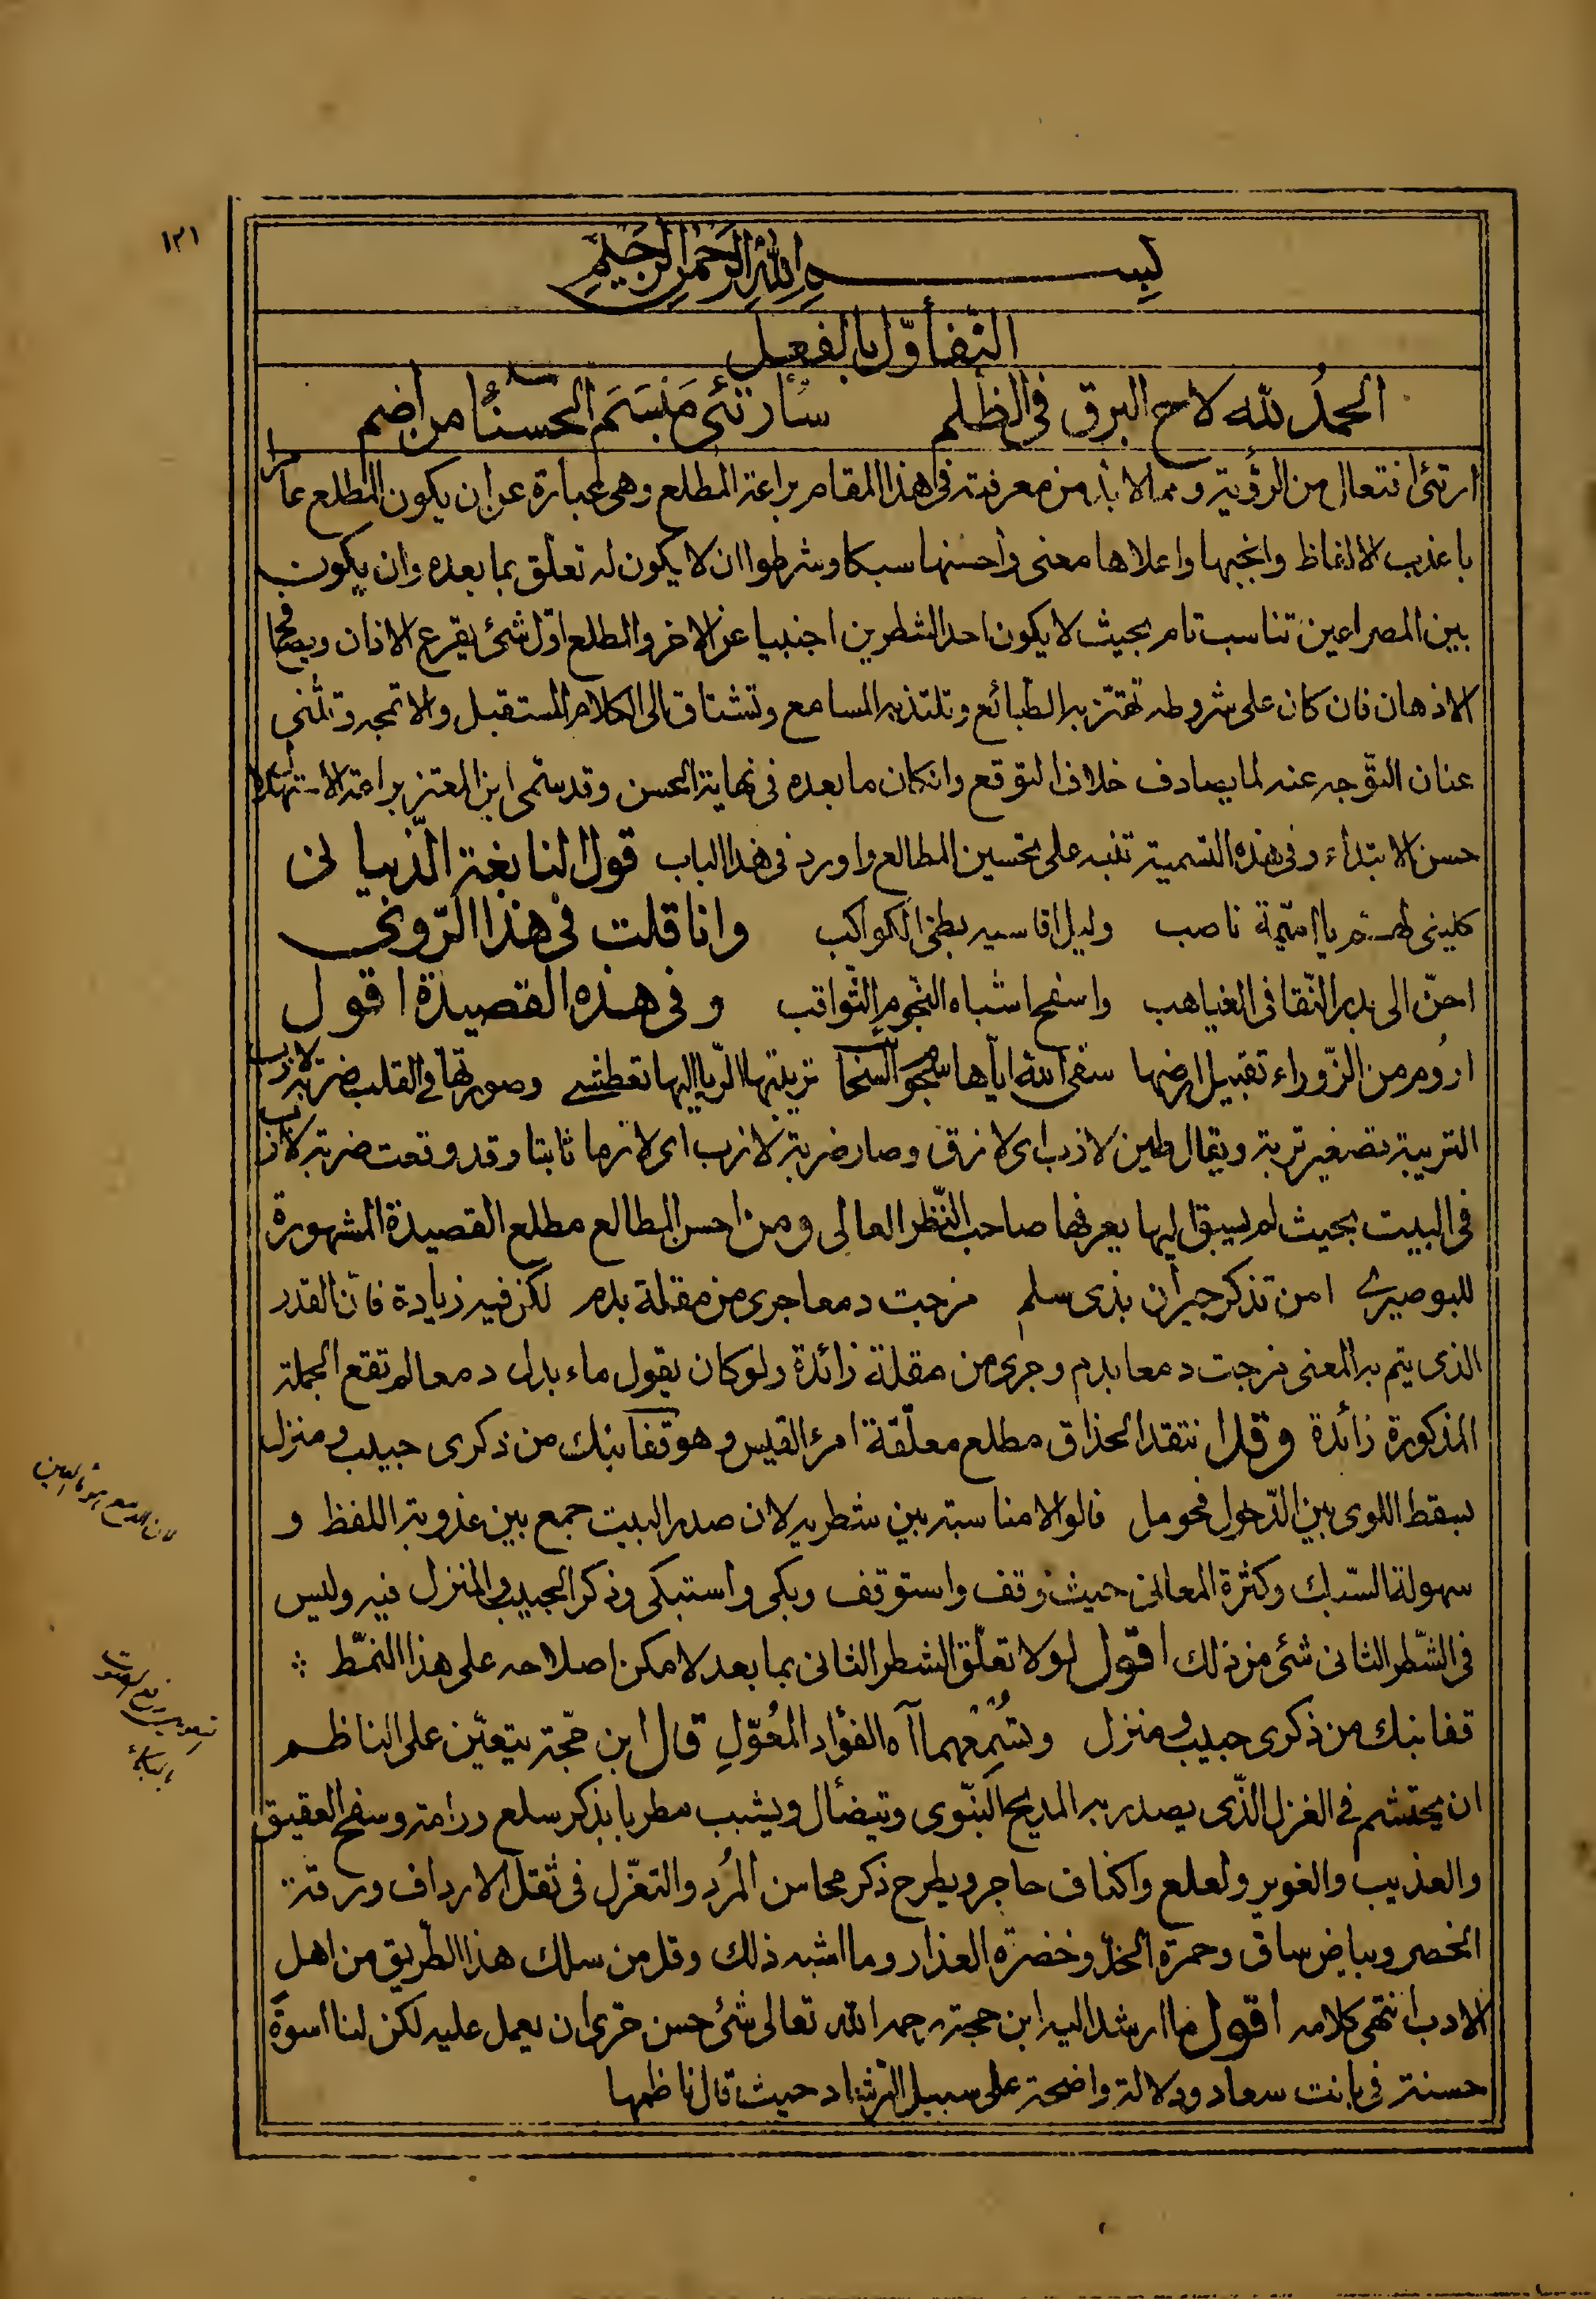 ١٢١
بسم الله الرحمن الرحيم
التفأوّل بالفعل
الحمدُ لله لاح البرق في الظلم سأرتئي مَبسَمَ الحسنُا من اضم
ارتئ افتعال من الرؤية ومما لا بد من معرفته في هذا المقام براعة المطلع وهي عبارة عن ان يكون المطلع عامرا
باعذب الالفاظ وانجبها واعلاها معنى واحسنها سبكا وشرطوا ان لا يكون له تعلق بما بعده وان يكون
بين المصراعين تناسب تام بحيث لا يكون احد الشطرين اجنبيا عن الاخر والمطلع اول شئ يقرع الاذان ويصافح
الاذهان فان كان على شروطه تهتز به الطبائع وتلتذ به المسامع وتشتاق الى الكلام المستقبل والا تمجه وتثنى
عنان التوجه عنه لما يصادف خلاف التوقع وانكان ما بعده في نهاية الحسن وقد سمى ابن المعتز براعة الاستهلال
حسن الابتداء وفي هذه التسمية تنبه على تحسين المطالع واورد في هذا الباب قول النابغة الذبياني
كليني لهم يا اميمة ناصب وليل اقاسيه بطئ الكواكب وانا قلت في هذا الروي
احنّ الى بدر النقا في الغياهب واسفح اشباه النجوم الثواقب وفي هذه القصيدة اقول
اروم من الزوراء تقبيل ارضها سقى الله اياها تريبتها الريا اليها تعطشي وصورتها في القلب ضربة لازب
التريبة تصغير تربة ويقال طين لازب اى لازق وصار ضربة لازب اى لازما ثابتا وقد وقعت ضربة لازب
في البيت بحيث لم يسبق اليها يعرفها صاحب النظر العالى ومن احسن المطالع مطلع القصيدة المشهورة
للبوصيري امن تذكر جيران بذى سلم مزجت دمعا جرى من مقلة بدم لكن فيه زيادة فان القدر
الذى يتم به المعنى مزجت دمعا بدم وجرى من مقلة زائدة ولو كان يقول ماء بدل دمعا لم تقع الجملة
المذكورة زائدة وقد انتقد الحذاق مطلع معلقة امرء القيس وهو قفا نبك من ذكرى حبيب ومنزل
بسقط اللوى بين الدخول فحومل قالوا لا مناسبة بين شطريه لان صدر البيت جمع بين عذوبة اللفظ و
سهولة السبك وكثرة المعانى حيث وقف واستوقف وبكى واستبكى وذكر الحبيب والمنزل فيه وليس
في الشطر الثانى شئ من ذلك اقول لولا تعلق الشطر الثانى بما بعد لامكن اصلاحه على هذا النمط
قفا نبك من ذكرى حبيب ومنزل ونُسْمِعهما آه الفؤاد المُعوّلِ قال ابن حجة يتعين على الناظم
ان يحتشم في الغزل الذى يصدر به المديح النبوى ويتضأل ويشبب مطربا بذكر سلع ورامة وسفح العقيق
والعذيب والغوير ولعلع واكناف حاجر ويطرح ذكر محاسن المُرد والتغزل في ثقل الارداف ورقة
الخصر وبياض ساق وحمرة الخد وخضرة العذار وما اشبه ذلك وقل من سلك هذا الطريق من اهل
الادب انتهى كلامه اقول ما ارشد اليه ابن حجة رحمه الله تعالى شئ حسن حرى ان يعمل عليه لكن لنا اسوة
حسنة في بانت سعاد ودلالة واضحة على سبيل الرشاد حيث قال ناظمها